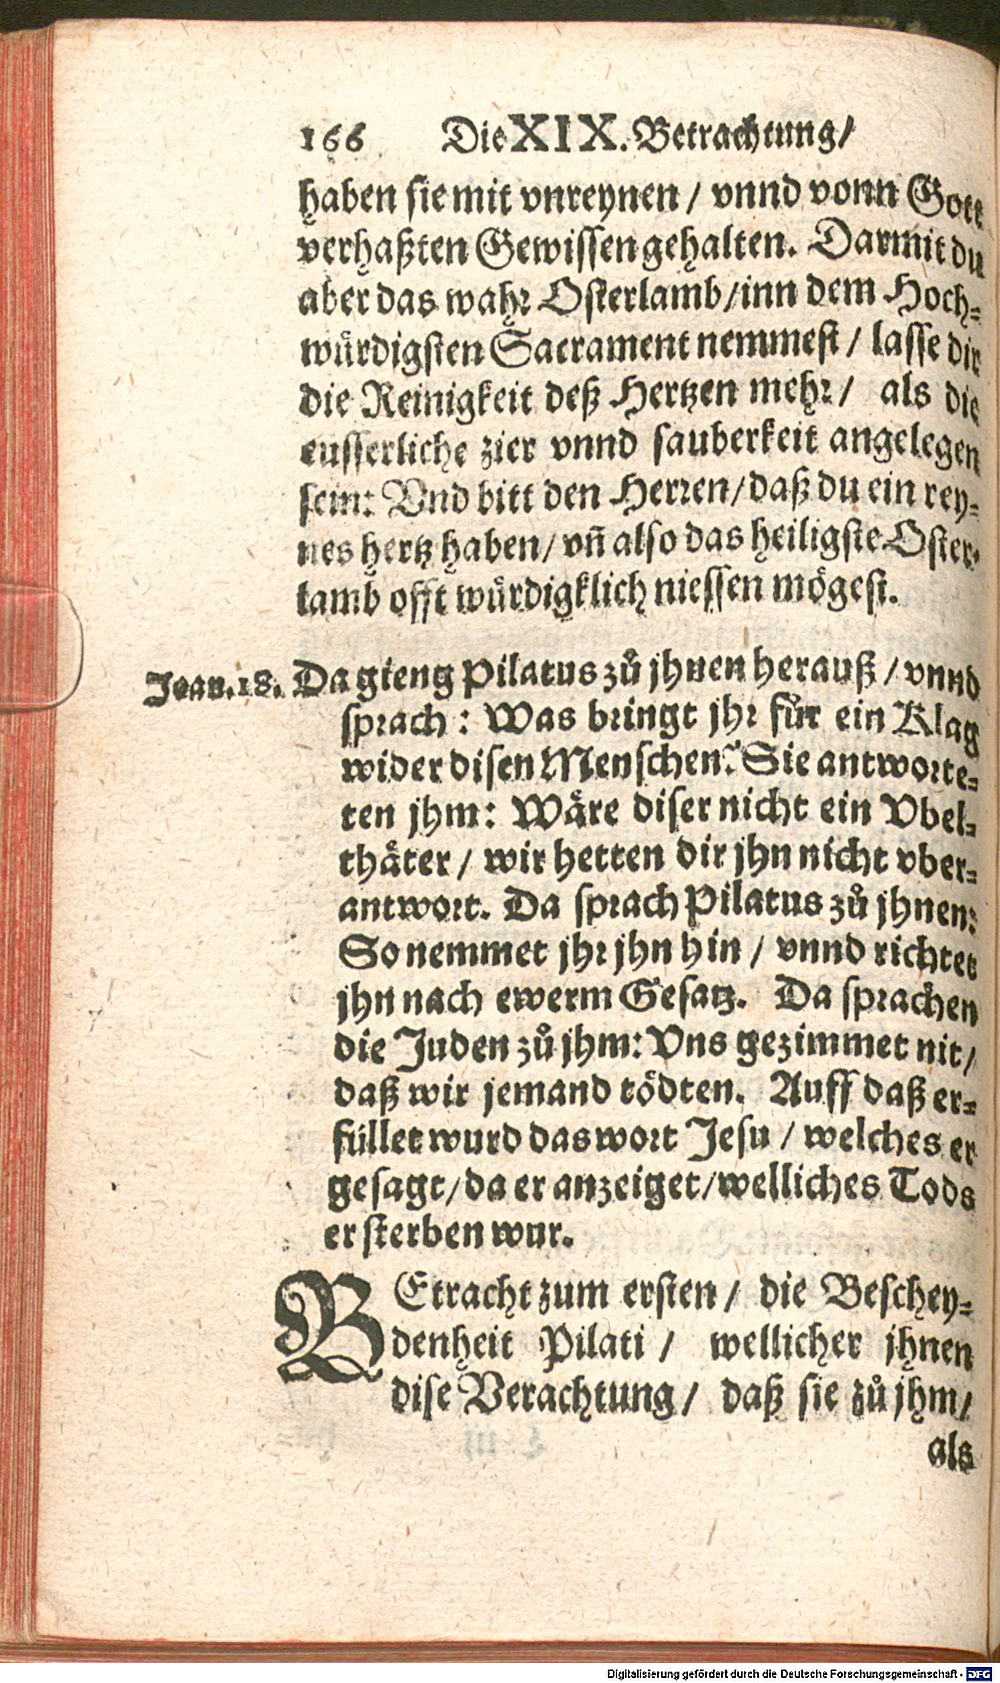 166 Die XIX. Betrachtung/
haben sie mit vnreynen / vnnd vonn Gott
verhaßten Gewissen gehalten. Darmit du
aber das wahr Osterlamb/inn dem Hoch-
würdigsten Sacrament nemmest / lasse dir
die Reinigkeit deß Hertzen mehr / als die
eusserliche zier vnnd sauberkeit angelegen
sein: Vnd bitt den Herren/daß du ein rey-
nes hertz haben/vñ also das heiligste Oster-
lamb offt würdigklich niessen mögest.
Joan.18. Da gieng Pilatus zů jhnen herauß / vnnd
sprach : Was bringt jhr für ein Klag
wider disen Menschen? Sie antworte-
ten jhm: Wäre diser nicht ein Vbel-
thäter / wir hetten dir jhn nicht vber-
antwort. Da sprach Pilatus zů jhnen:
So nemmet jhr jhn hin / vnnd richtet
jhn nach ewerm Gesatz. Da sprachen
die Juden zů jhm: Vns gezimmet nit/
daß wir jemand tödten. Auff daß er-
füllet wurd das wort Jesu / welches er
gesagt/da er anzeiget/welliches Tods
er sterben wur.
BEtracht zum ersten / die Beschey-
denheit Pilati / wellicher jhnen
dise Verachtung/ daß sie zů jhm/
als
Digitalisierung gefördert durch die Deutsche Forschungsgemeinschaft - DFG